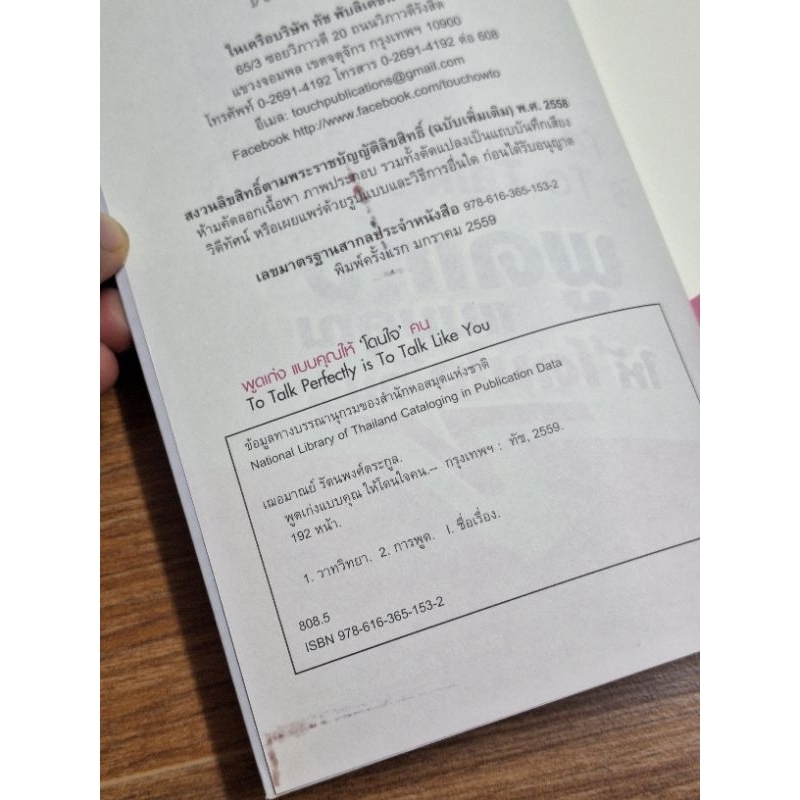 ในเครือบริษัท ทัช พับลิเคชั่น
65/3 ซอยวิภาวดี 20 ถนนวิภาวดีรังสิต
แขวงจอมพล เขตจตุจักร กรุงเทพฯ 10900
โทรศัพท์ 0-2691-4192 โทรสาร 0-2691-4192 ต่อ 608
อีเมล: touchpublications@gmail.com
Facebook http://www.facebook.com/touchowto
สงวนลิขสิทธิ์ตามพระราชบัญญัติลิขสิทธิ์ (ฉบับเพิ่มเติม) พ.ศ. 2558
ห้ามคัดลอกเนื้อหา ภาพประกอบ รวมทั้งดัดแปลงเป็นแถบบันทึกเสียง
วิดีทัศน์ หรือเผยแพร่ด้วยรูปแบบและวิธีการอื่นใด ก่อนได้รับอนุญาต
เลขมาตรฐานสากลประจำหนังสือ 978-616-365-153-2
พิมพ์ครั้งแรก มกราคม 2559
พูดเก่ง แบบคุณให้ 'โดนใจ' คน
To Talk Perfectly is To Talk Like You
ข้อมูลทางบรรณานุกรมของสำนักหอสมุดแห่งชาติ
National Library of Thailand Cataloging in Publication Data
เฌอมาณย์ รัตนพงศ์ตระกูล.
พูดเก่งแบบคุณ ให้โดนใจคน.-- กรุงเทพฯ : ทัช, 2559.
192 หน้า.
1. วาทวิทยา. 2. การพูด. I. ชื่อเรื่อง.
808.5
ISBN 978-616-365-153-2